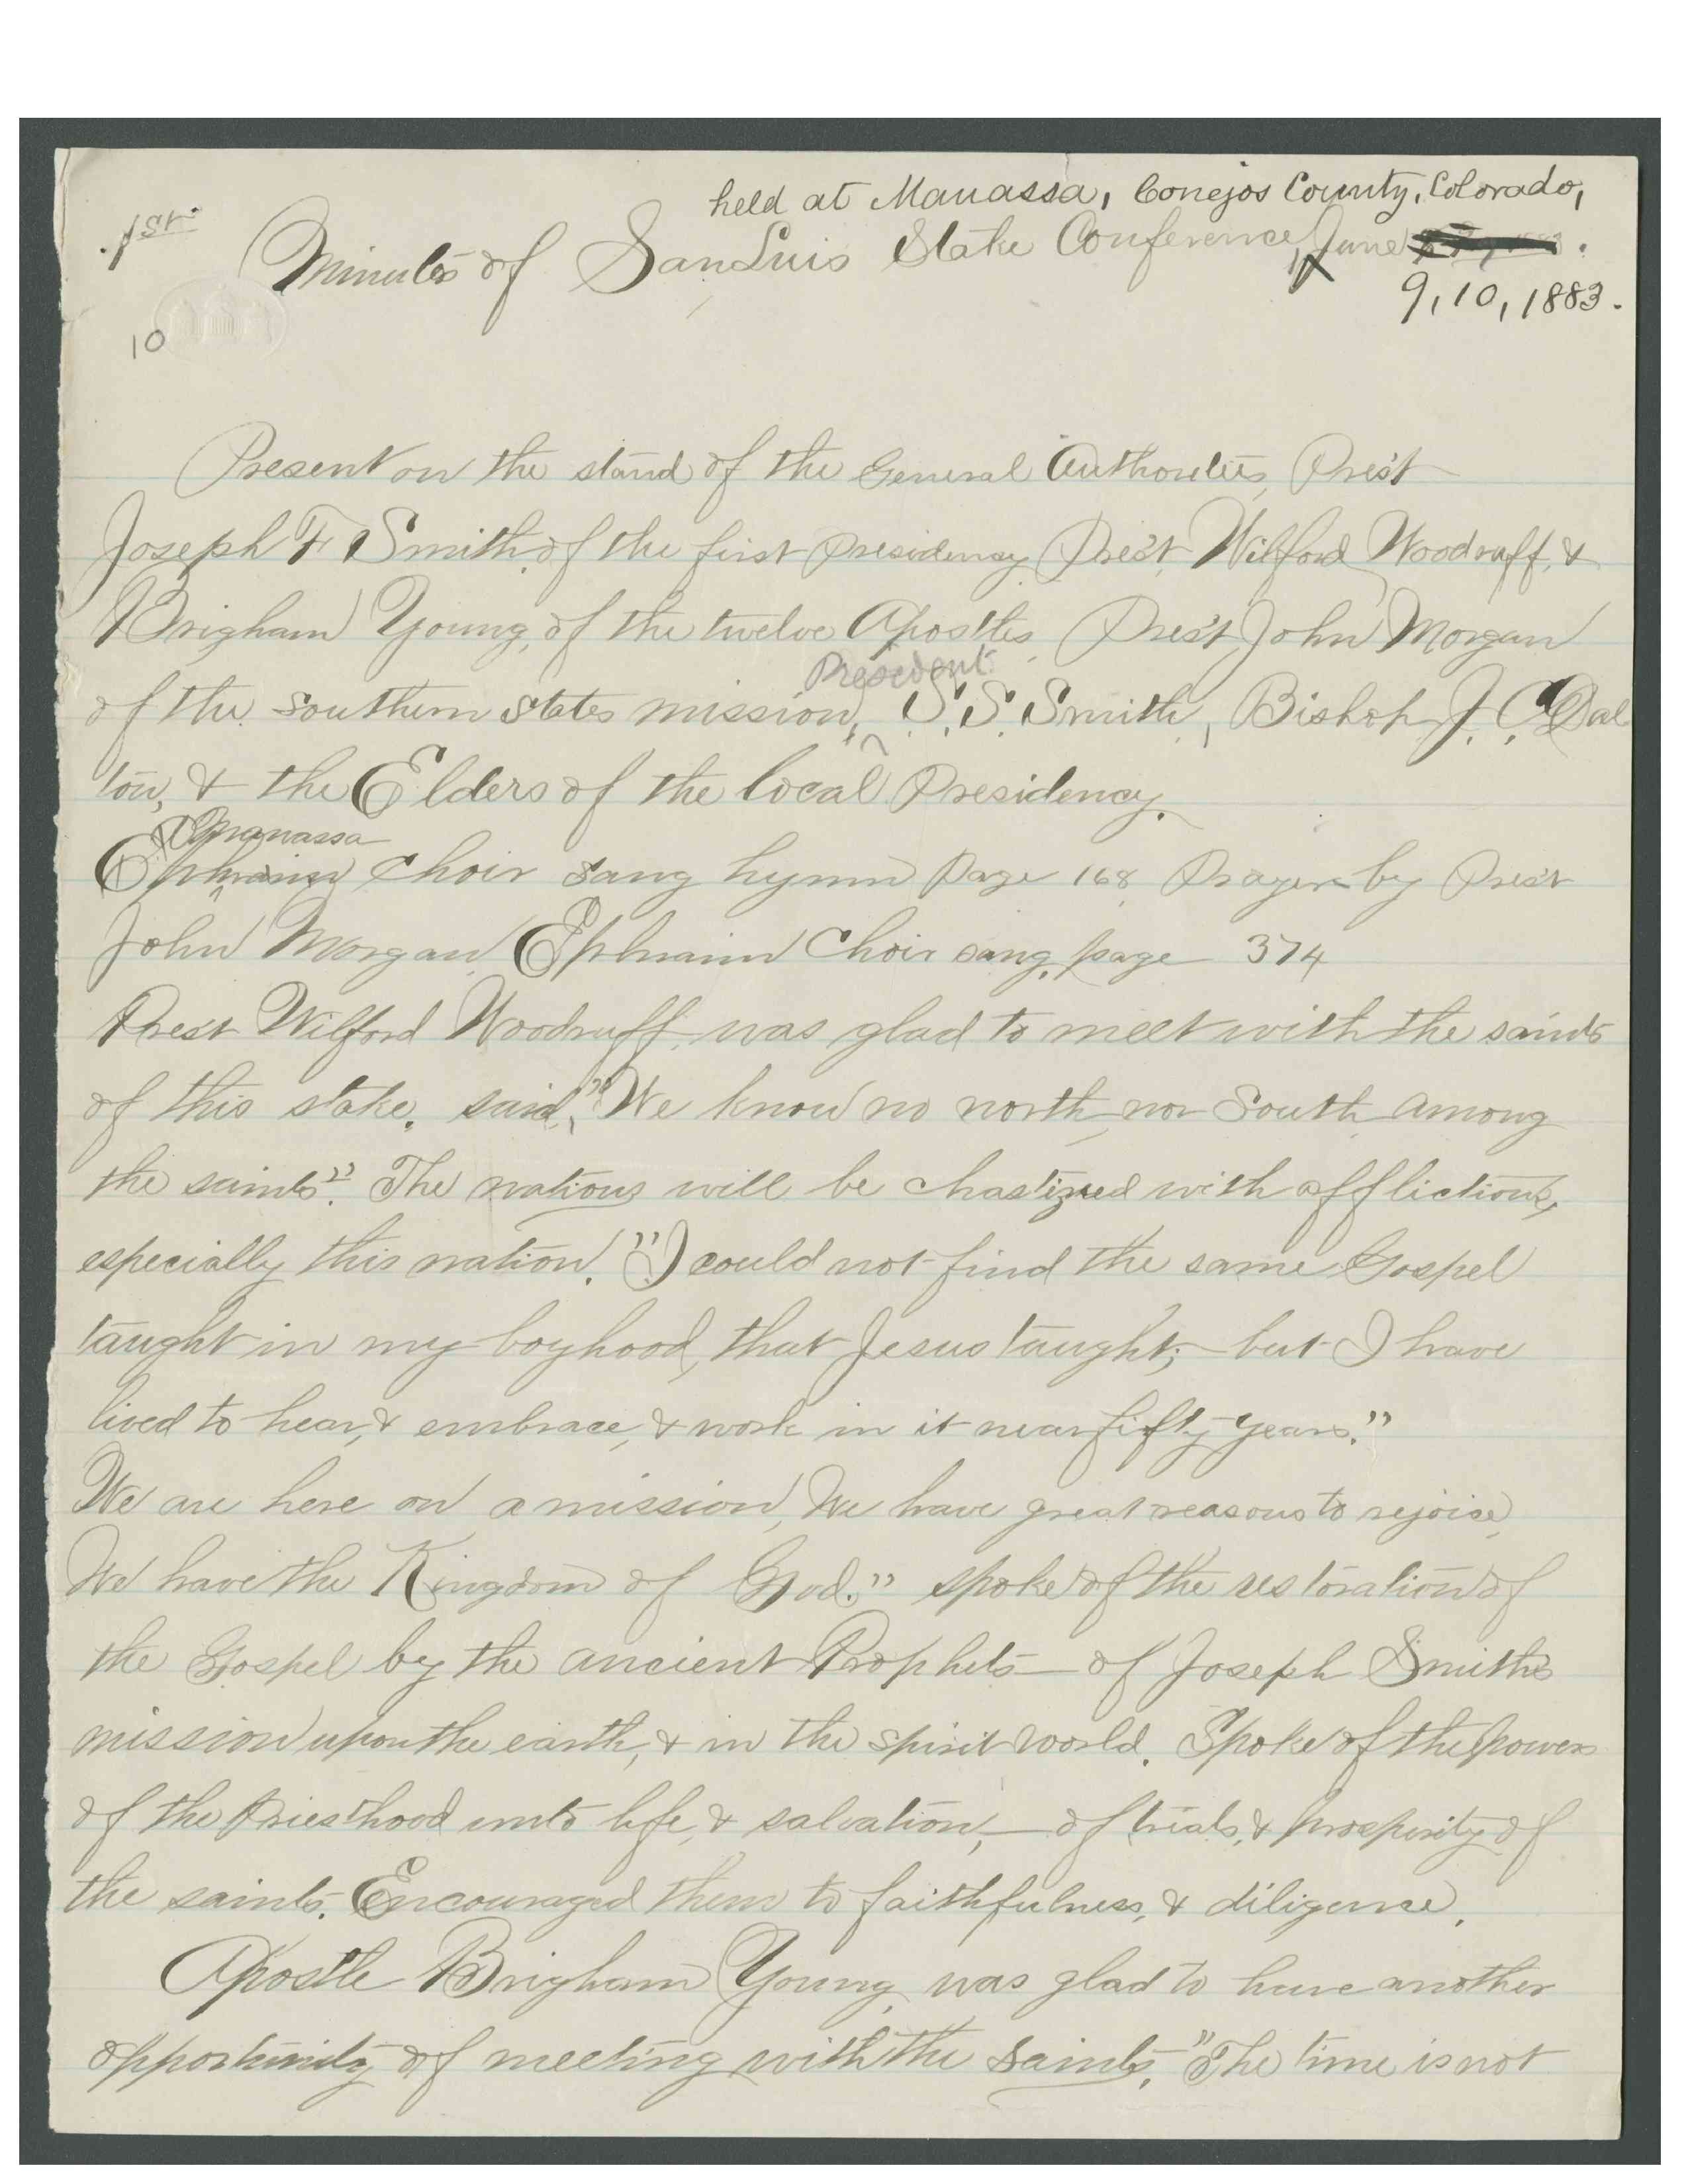 held at Manassa, Conejos County, Colorado,
1st.
Minutes of San Luis Stake Conference, June
9, 10, 1883.
10
Present on the stand of the General Authorities, Pres't
Joseph F Smith, of the first Presidency, Pres't, Wilford Woodruff, &
Brigham Young, of the twelve Apostles, Pres't John Morgan
President
of the southern states mission, S. S. Smith, Bishop J. C. Dal
ton, & the Elders of the local Presidency.
Manassa
Ephraim Choir sang hymn page 168 Prayer by Pres't
John Morgan Ephraim Choir sang, page 374
Prest Wilford Woodruff, was glad to meet with the saints
of this stake. said, "We know no north, nor South among
the saints". The nations will be chastized with afflictions,
especially this nation. "I could not find the same Gospel
taught in my boyhood, that Jesus taught; but I have
lived to hear, & embrace, & work in it near fifty years."
We are here on a mission, We have great reasons to rejoice,
We have the Kingdom of God." spoke of the restoration of
the Gospel by the ancient Prophets — of Joseph Smith's
mission upon the earth, & in the spirit world. Spoke of the power
of the Priesthood unto life, & salvation, — of trials, & prosperity of
the saints. Encouraged them to faithfulness, & diligence.
Apostle Brigham Young, was glad to have another
opportunity of meeting with the saints. "The time is not